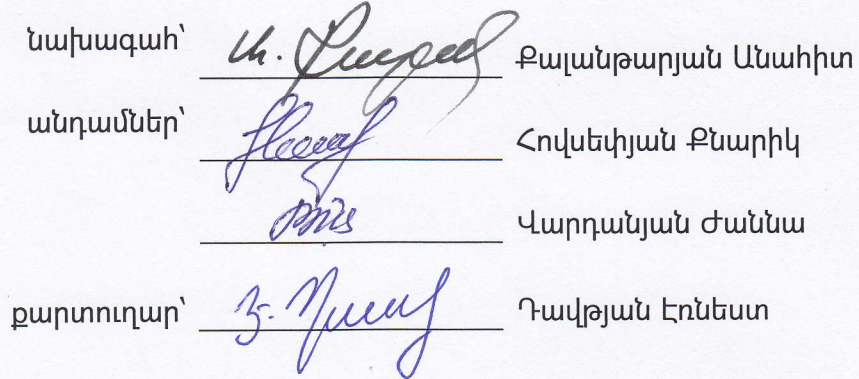 նախագահ՝ Քալանթարյան Անահիտ
անդամներ՝ Հովսեփյան Քնարիկ
Վարդանյան Ժաննա
քարտուղար՝ Դավթյան Էռնեստ